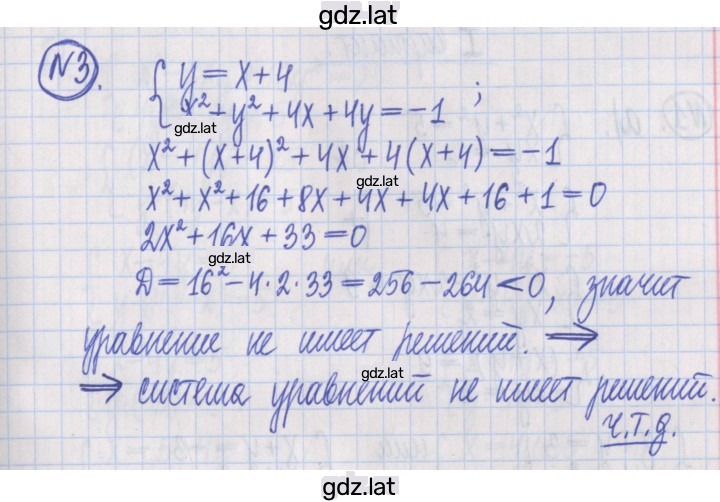 gdz.lat
№3.
{ y = x + 4
x² + y² + 4x + 4y = -1 ;
gdz.lat
x² + (x+4)² + 4x + 4(x+4) = -1
gdz.lat
x² + x² + 16 + 8x + 4x + 4x + 16 + 1 = 0
2x² + 16x + 33 = 0
gdz.lat
Д = 16² - 4·2·33 = 256 - 264 < 0, значит
уравнение не имеет решений. ⇒
gdz.lat
⇒ система уравнений не имеет решений.
ч.т.д.
gdz.lat